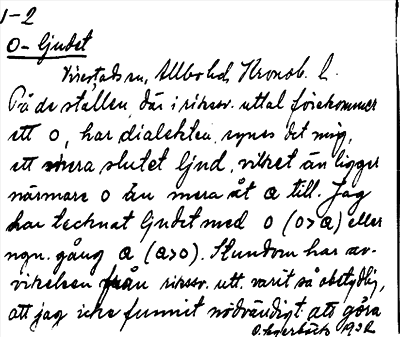 1-2
O-ljudet
Virestads sn, Allbo hd, Kronob. l.
På de ställen, där i riksv. uttal förekommer
ett o, har dialekten, synes det mig,
ett mera slutet ljud, vilket än ligger
närmare o än mera åt a till. Jag
har tecknat ljudet med o (o>a) eller
ngn. gång a (a>o). Stundom har av-
vikelsen från riksv. utt. varit så obetydlig,
att jag icke funnit nödvändigt att göra
1932